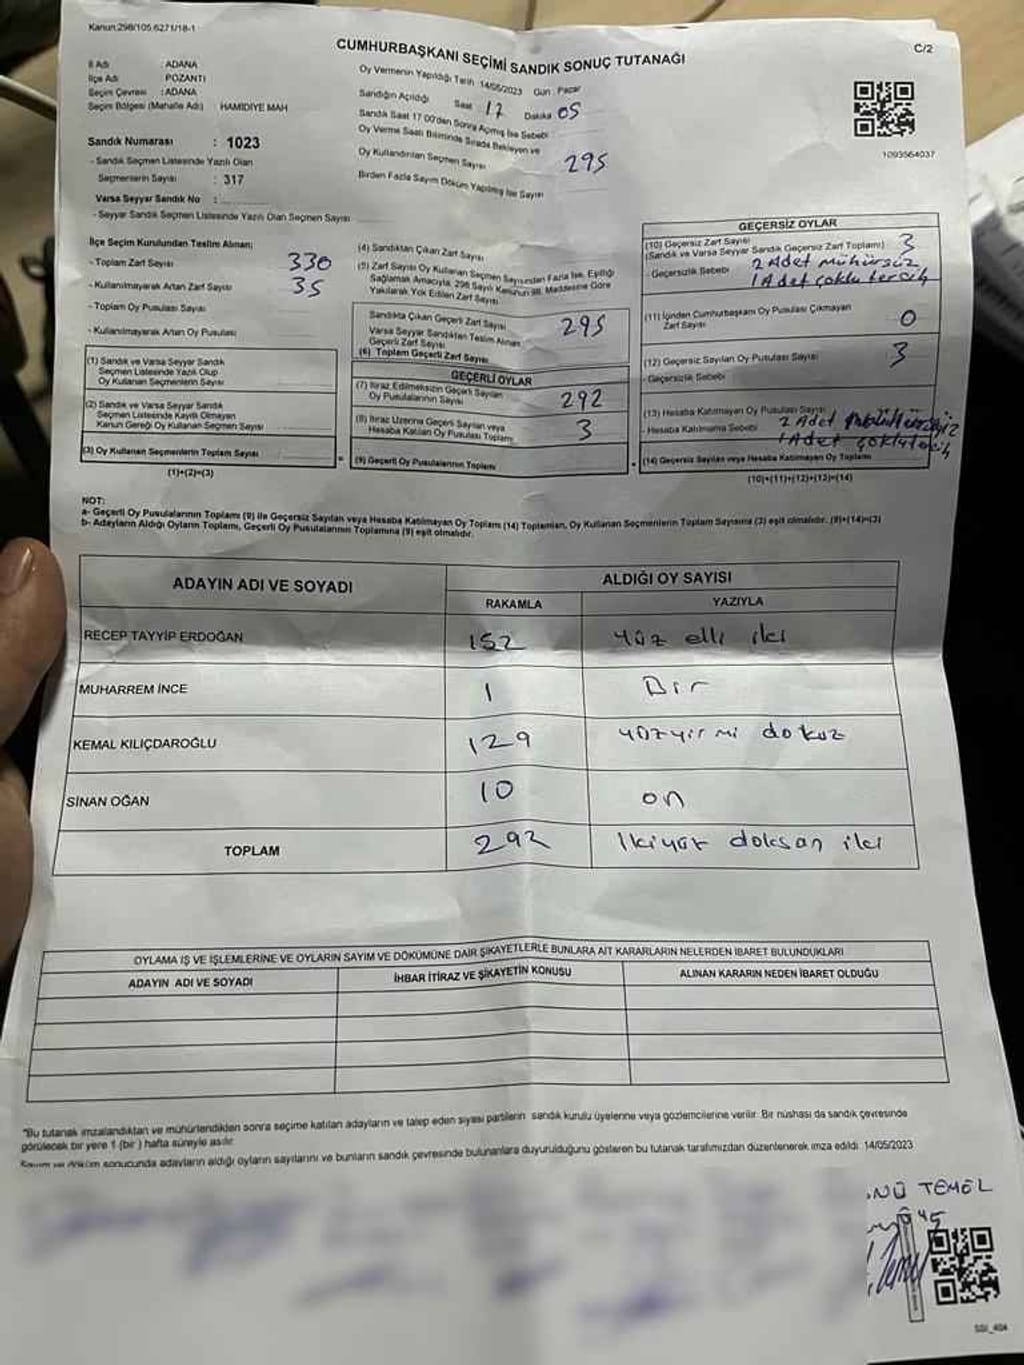 Kanun:298/105.6271/18-1
C/2
CUMHURBAŞKANI SEÇİMİ SANDIK SONUÇ TUTANAĞI
İl Adı : ADANA
İlçe Adı : POZANTI
Seçim Çevresi : ADANA
Seçim Bölgesi (Mahalle Adı) : HAMİDİYE MAH
Sandık Numarası : 1023
- Sandık Seçmen Listesinde Yazılı Olan
Seçmenlerin Sayısı : 317
Varsa Seyyar Sandık No :
- Seyyar Sandık Seçmen Listesinde Yazılı Olan Seçmen Sayısı
Oy Vermenin Yapıldığı Tarih 14/05/2023 Gün : Pazar
Sandığın Açıldığı Saat 17 Dakika 05
Sandık Saat 17:00'den Sonra Açılmış İse Sebebi
Oy Verme Saati Bitiminde Sırada Bekleyen ve
Oy Kullandırılan Seçmen Sayısı 295
Birden Fazla Sayım Döküm Yapılmış İse Sayısı
1093564037
İlçe Seçim Kurulundan Teslim Alınan;
- Toplam Zarf Sayısı 330
- Kullanılmayarak Artan Zarf Sayısı 35
- Toplam Oy Pusulası Sayısı
- Kullanılmayarak Artan Oy Pusulası
(1) Sandık ve Varsa Seyyar Sandık
Seçmen Listesinde Yazılı Olup
Oy Kullanan Seçmenlerin Sayısı
(2) Sandık ve Varsa Seyyar Sandık
Seçmen Listesinde Kayıtlı Olmayan
Kanun Gereği Oy Kullanan Seçmen Sayısı
(3) Oy Kullanan Seçmenlerin Toplam Sayısı
(1)+(2)=(3)
(4) Sandıktan Çıkan Zarf Sayısı
(5) Zarf Sayısı Oy Kullanan Seçmen Sayısından Fazla İse, Eşitliği
Sağlamak Amacıyla, 298 Sayılı Kanunun 98. Maddesine Göre
Yakılarak Yok Edilen Zarf Sayısı
Sandıkta Çıkan Geçerli Zarf Sayısı 295
Varsa Seyyar Sandıktan Teslim Alınan
Geçerli Zarf Sayısı
(6) Toplam Geçerli Zarf Sayısı
GEÇERLİ OYLAR
(7) İtiraz Edilmeksizin Geçerli Sayılan
Oy Pusulalarının Sayısı 292
(8) İtiraz Üzerine Geçerli Sayılan veya
Hesaba Katılan Oy Pusulası Toplamı 3
(9) Geçerli Oy Pusulalarının Toplamı
GEÇERSİZ OYLAR
(10) Geçersiz Zarf Sayısı
(Sandık ve Varsa Seyyar Sandık Geçersiz Zarf Toplamı) 3
- Geçersizlik Sebebi 2 Adet mühürsüz
1 Adet çoklu tercih
(11) İçinden Cumhurbaşkanı Oy Pusulası Çıkmayan
Zarf Sayısı 0
(12) Geçersiz Sayılan Oy Pusulası Sayısı 3
- Geçersizlik Sebebi
(13) Hesaba Katılmayan Oy Pusulası Sayısı
- Hesaba Katılmama Sebebi 2 Adet
1 Adet çoklu tercih
(14) Geçersiz Sayılan veya Hesaba Katılmayan Oy Toplamı
(10)+(11)+(12)+(13)=(14)
NOT:
a- Geçerli Oy Pusulalarının Toplamı (9) ile Geçersiz Sayılan veya Hesaba Katılmayan Oy Toplamı (14) Toplamları, Oy Kullanan Seçmenlerin Toplam Sayısına (3) eşit olmalıdır. (9)+(14)=(3)
b- Adayların Aldığı Oyların Toplamı, Geçerli Oy Pusulalarının Toplamına (9) eşit olmalıdır.
ADAYIN ADI VE SOYADI ALDIĞI OY SAYISI
RAKAMLA YAZIYLA
RECEP TAYYİP ERDOĞAN 152 yüz elli iki
MUHARREM İNCE 1 Bir
KEMAL KILIÇDAROĞLU 129 yüzyirmi dokuz
SİNAN OĞAN 10 on
TOPLAM 292 İkiyüz doksan iki
OYLAMA İŞ VE İŞLEMLERİNE VE OYLARIN SAYIM VE DÖKÜMÜNE DAİR ŞİKAYETLERLE BUNLARA AİT KARARLARIN NELERDEN İBARET BULUNDUKLARI
ADAYIN ADI VE SOYADI İHBAR İTİRAZ VE ŞİKAYETİN KONUSU ALINAN KARARIN NEDEN İBARET OLDUĞU
"Bu tutanak imzalandıktan ve mühürlendikten sonra seçime katılan adayların ve talep eden siyasi partilerin sandık kurulu üyelerine veya gözlemcilerine verilir. Bir nüshası da sandık çevresinde
görülecek bir yere 1 (bir) hafta süreyle asılır.
Sayım ve döküm sonucunda adayların aldığı oyların sayılarını ve bunların sandık çevresinde bulunanlara duyurulduğunu gösteren bu tutanak tarafımızdan düzenlenerek imza edildi. 14/05/2023
NÜ TEMEL